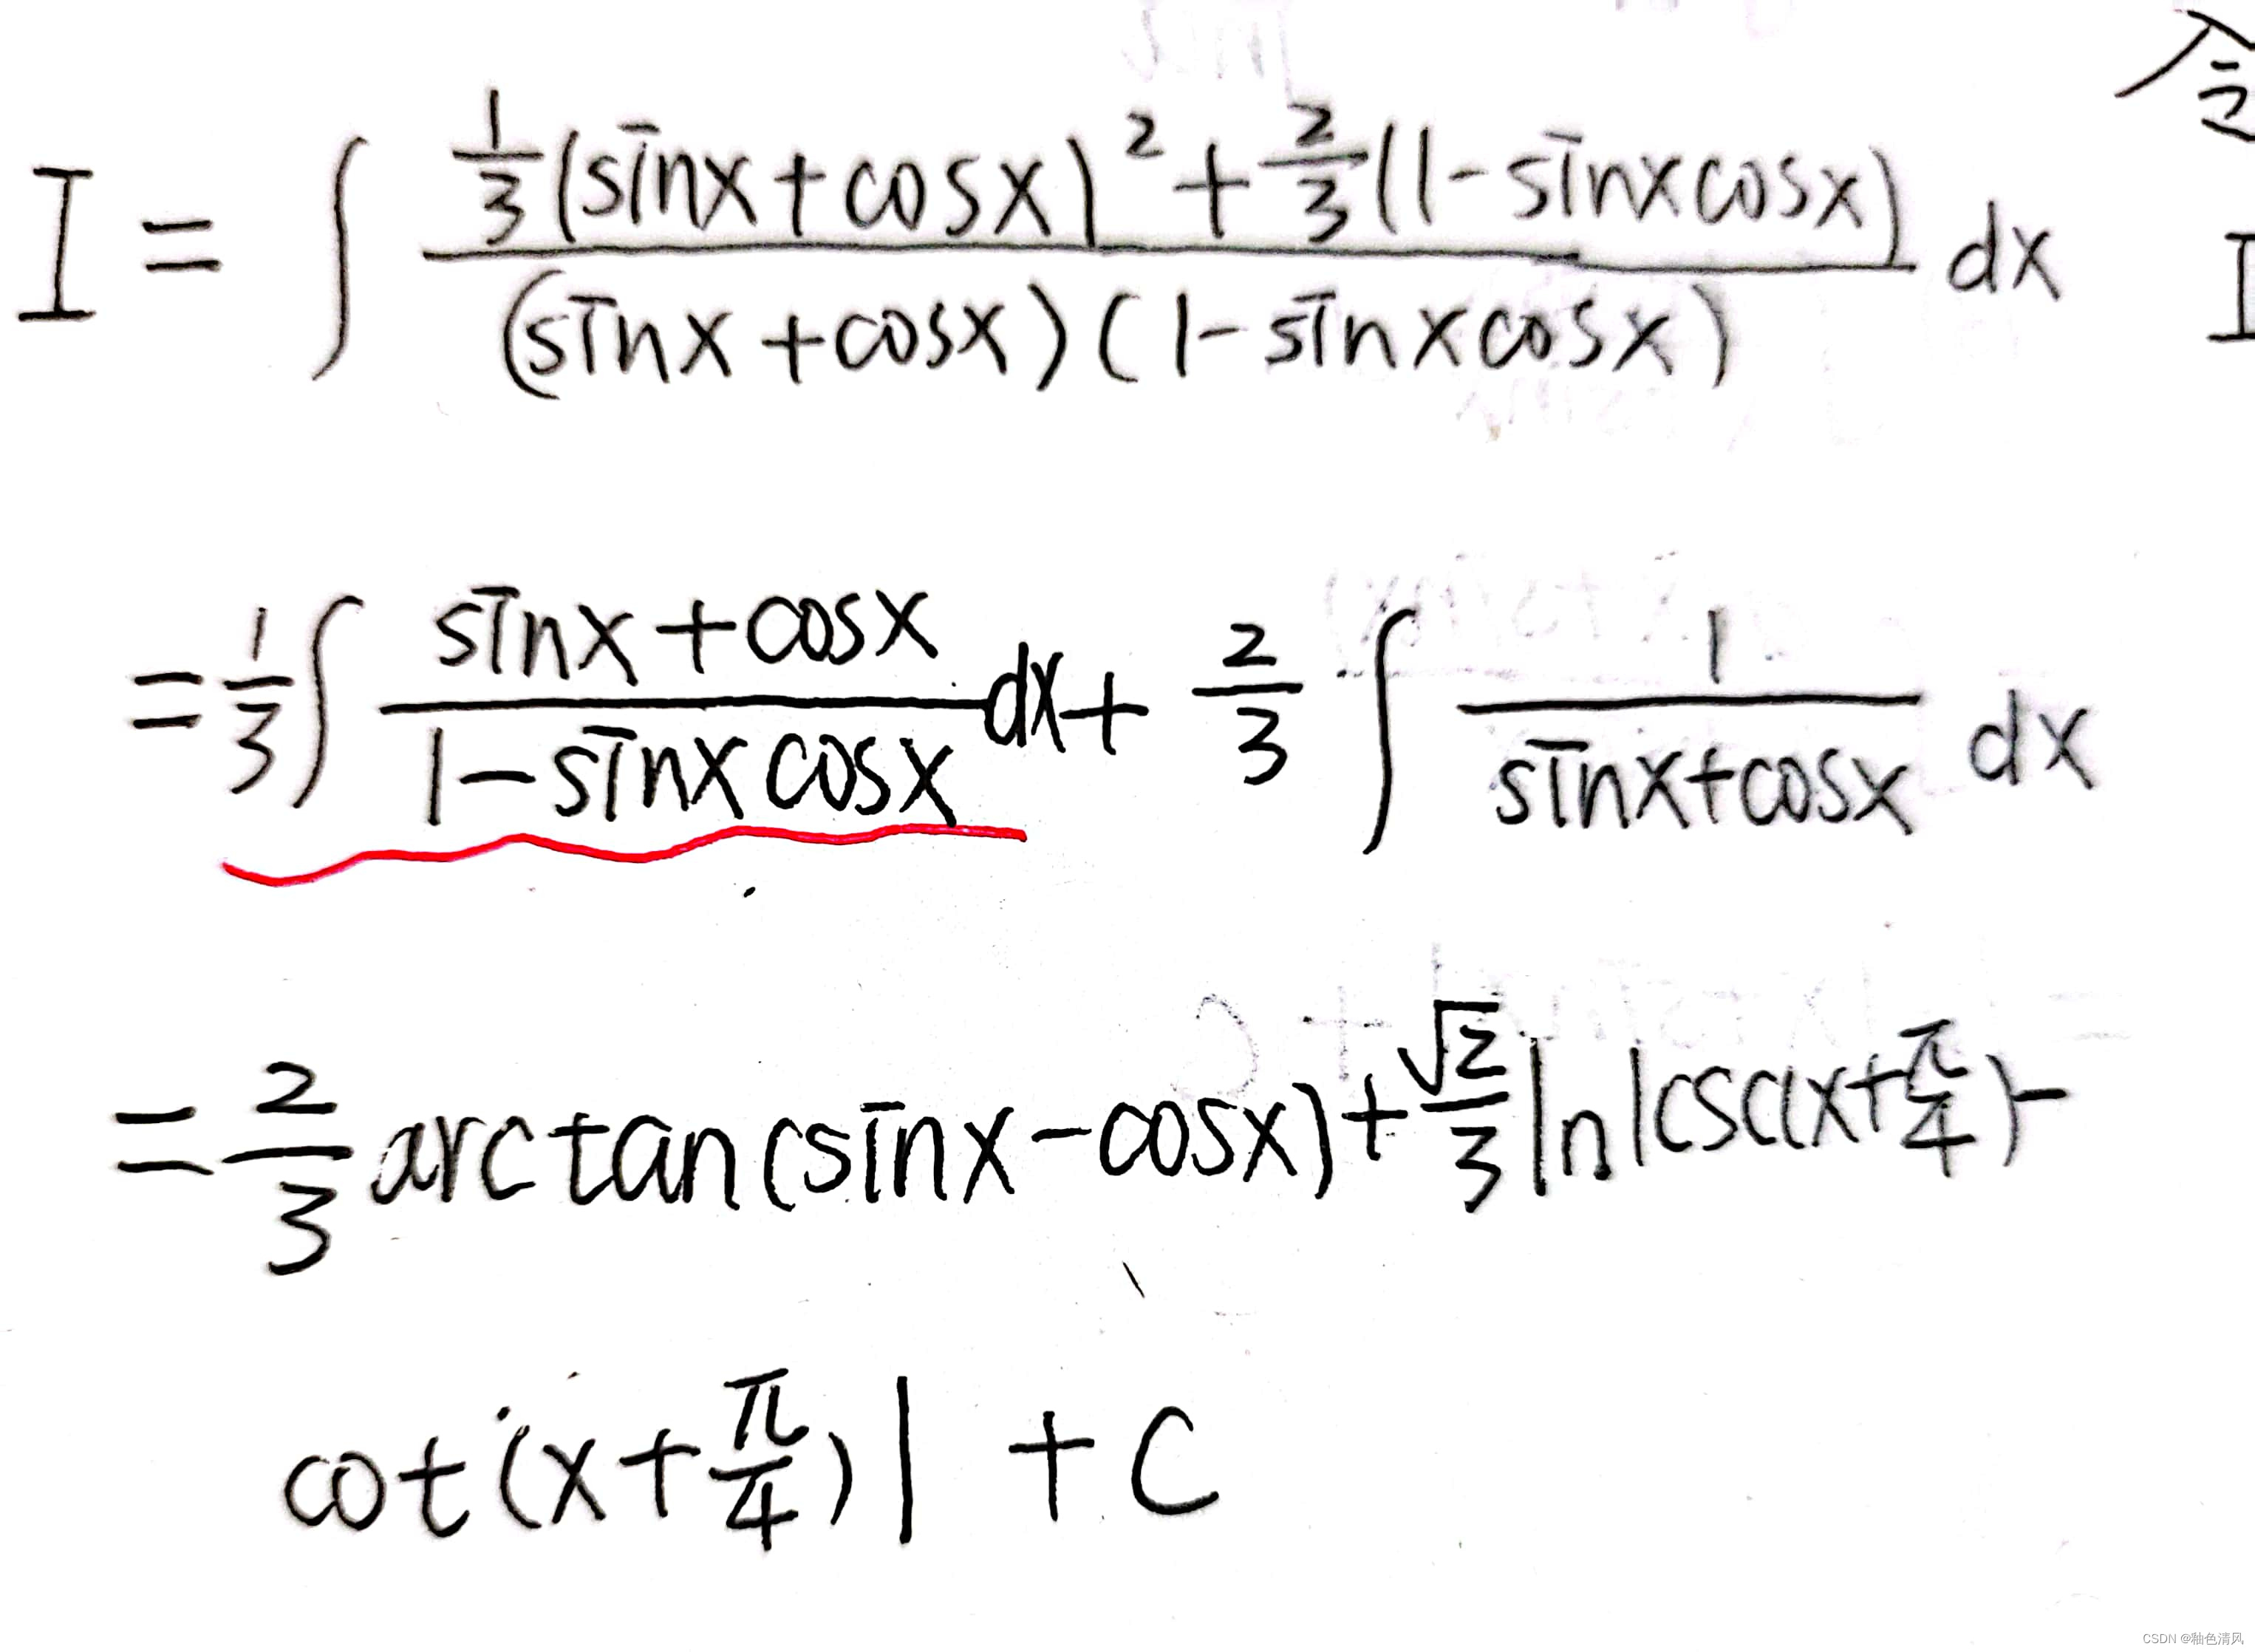 I = ∫ \frac{\frac{1}{3}(sinx+cosx)^2+\frac{2}{3}(1-sinxcosx)}{(sinx+cosx)(1-sinxcosx)} dx
令
I
= \frac{1}{3}∫ \frac{sinx+cosx}{1-sinxcosx} dx + \frac{2}{3} ∫ \frac{1}{sinx+cosx} dx
= \frac{2}{3} arctan(sinx-cosx) + \frac{\sqrt{2}}{3} ln|csc(x+\frac{π}{4})-
cot(x+\frac{π}{4})| + C
CSDN @釉色清风